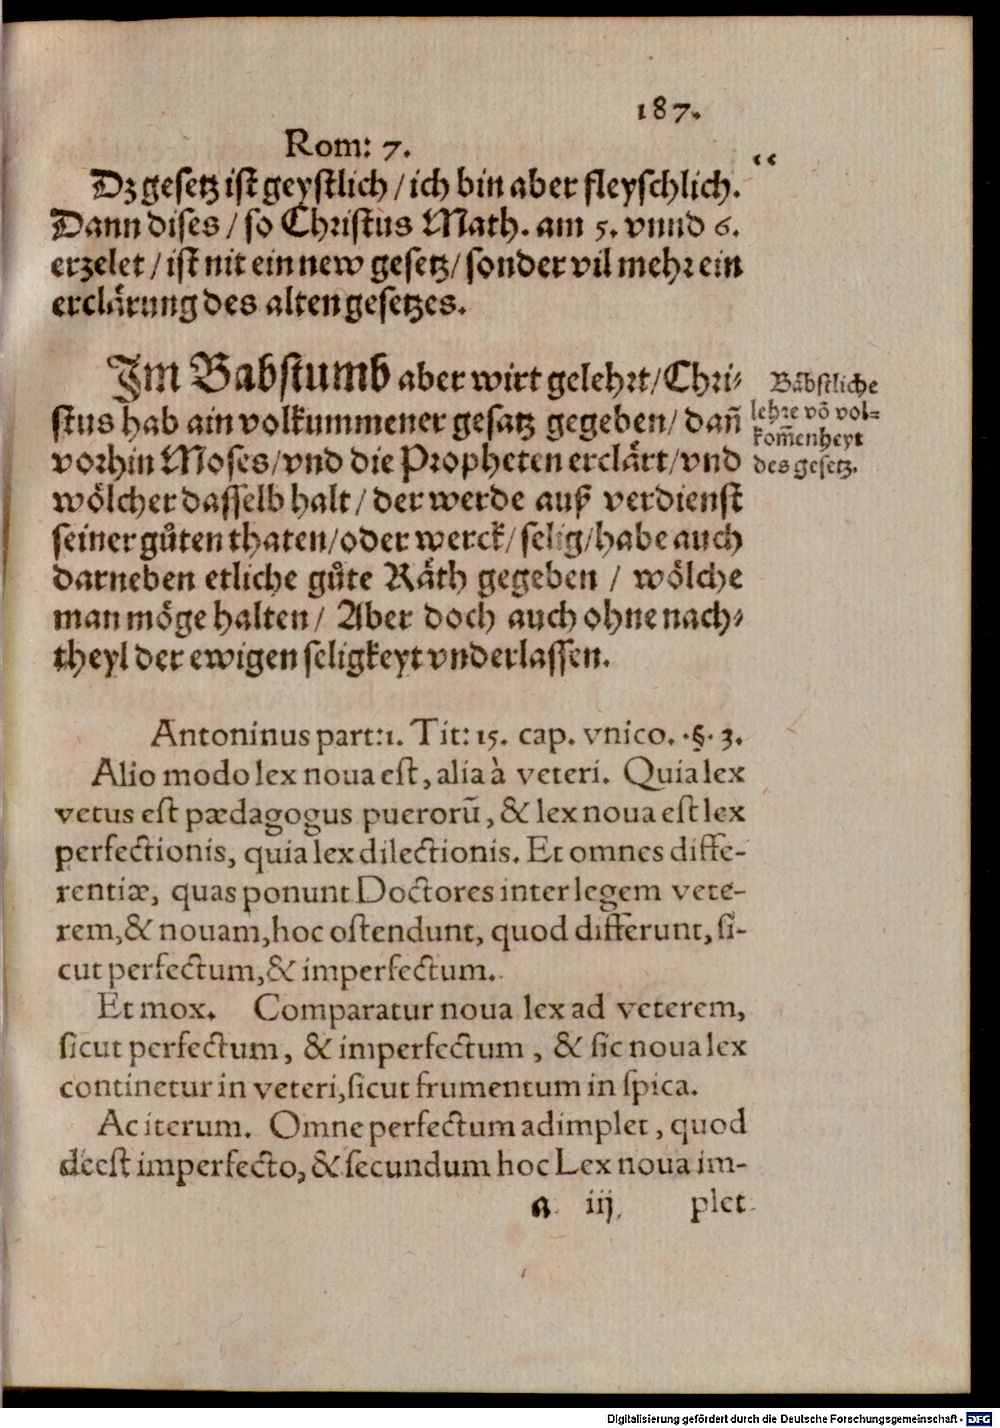 187.
Rom: 7.
Dz gesetz ist geystlich / ich bin aber fleyschlich. “
Dann dises / so Christus Math. am 5. vnnd 6.
erzelet / ist nit ein new gesetz / sonder vil mehr ein
erclärung des alten gesetzes.
Im Babstumb aber wirt gelehrt / Chri-
stus hab ain volkummener gesatz gegeben / dañ
vorhin Moses / vnd die Propheten erclärt / vnd
wölcher dasselb halt / der werde auß verdienst
seiner gůten thaten / oder werck / selig / habe auch
darneben etliche gůte Räth gegeben / wölche
man möge halten / Aber doch auch ohne nach-
theyl der ewigen seligkeyt vnderlassen.
Bäbstliche
lehre võ vol-
kom̃enheyt
des gesetz.
Antoninus part:1. Tit: 15. cap. vnico. ·§· 3.
Alio modo lex noua est, alia à veteri. Quia lex
vetus est pædagogus puerorũ, & lex noua est lex
perfectionis, quia lex dilectionis. Et omnes diffe-
rentiæ, quas ponunt Doctores inter legem vete-
rem, & nouam, hoc ostendunt, quod differunt, si-
cut perfectum, & imperfectum.
Et mox. Comparatur noua lex ad veterem,
sicut perfectum, & imperfectum, & sic noua lex
continetur in veteri, sicut frumentum in spica.
Ac iterum. Omne perfectum adimplet, quod
deest imperfecto, & secundum hoc Lex noua im-
a iij plet
Digitalisierung gefördert durch die Deutsche Forschungsgemeinschaft - DFG